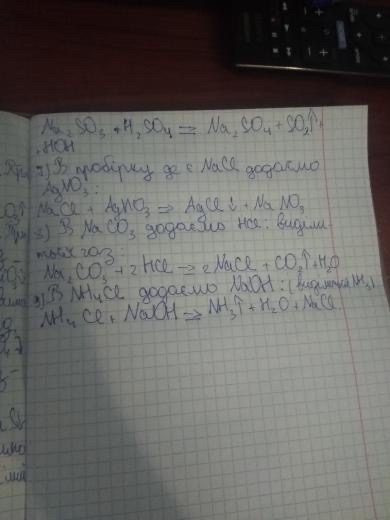 Na₂SO₃ + H₂SO₄ = Na₂SO₄ + SO₂↑ +
+HOH
2) В пробірку де є NaCl додаємо
AgNO₃:
NaCl + AgNO₃ → AgCl↓ + NaNO₃
3) В NaCO₃ додаємо HCl: виділи
ться газ:
Na₂CO₃ + 2HCl → 2NaCl + CO₂↑ + H₂O
В NH₄Cl додаємо NaOH: (виділиться NH₃)
NH₄Cl + NaOH → NH₃↑ + H₂O + NaCl.